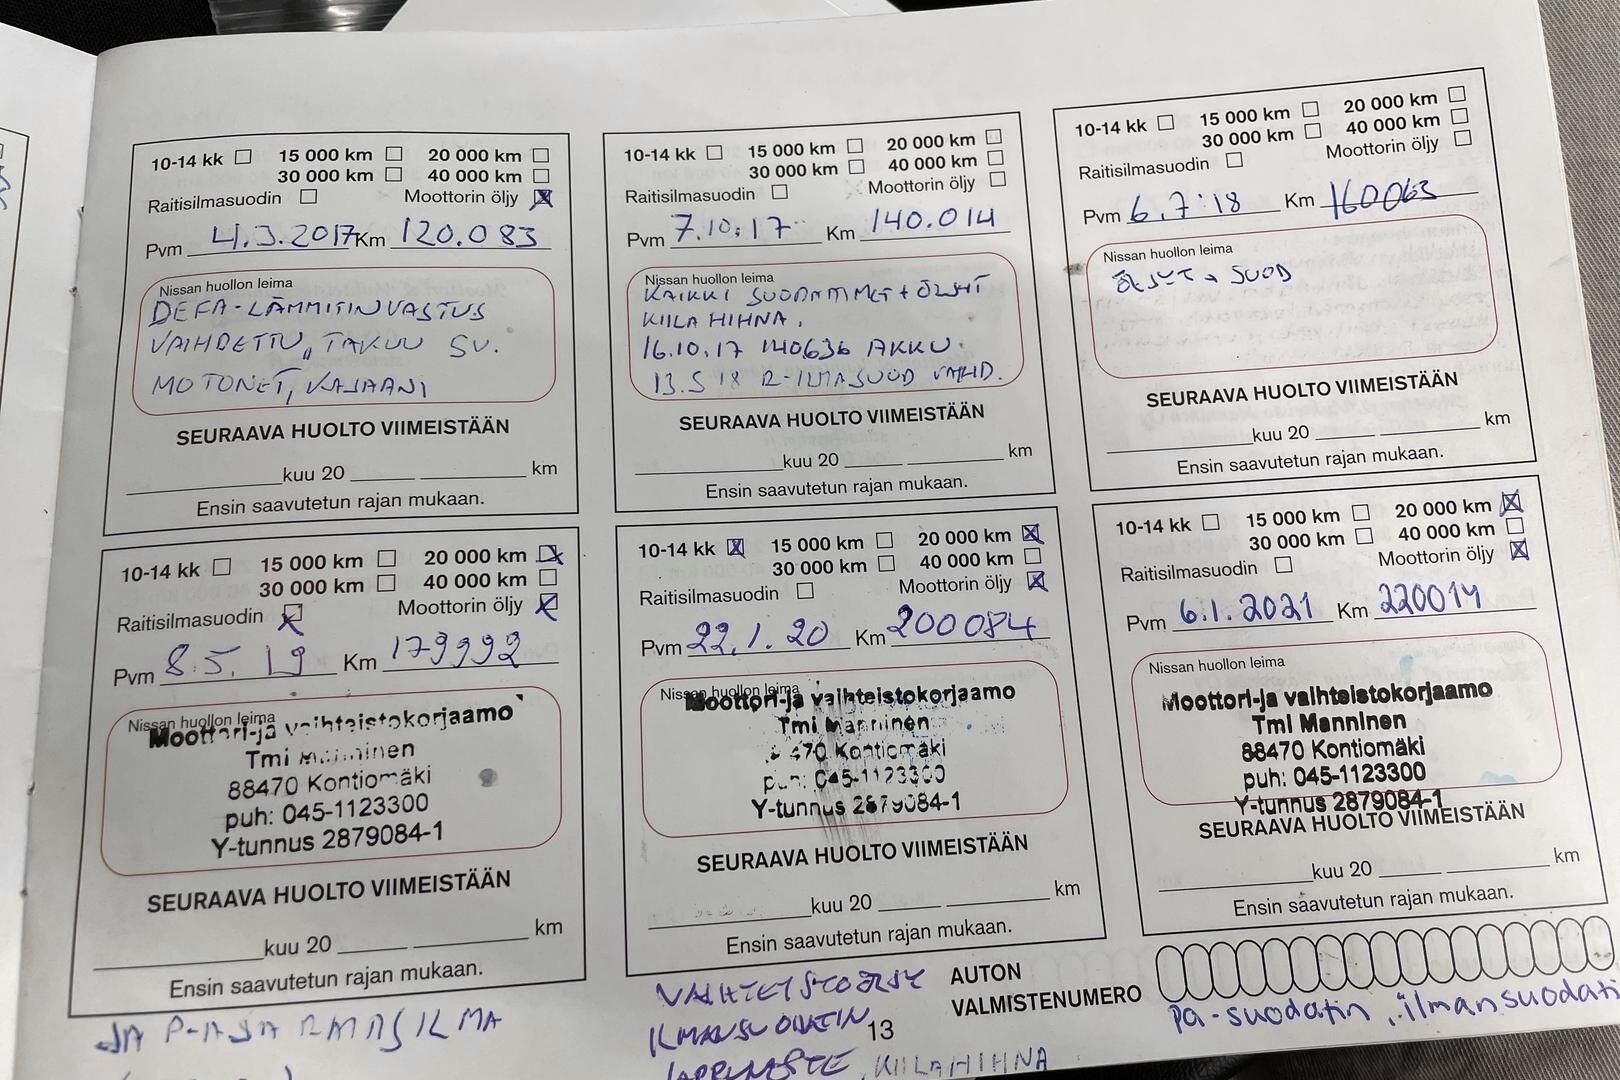 10-14 kk 15 000 km 20 000 km
30 000 km 40 000 km
Raitisilmasuodin Moottorin öljy
Pvm 4.3.2017 Km 120.083
Nissan huollon leima
DEFA-LÄMMITINVASTUS
VAIHDETTU, TAKUU SU.
MOTONET, KAJAANI
SEURAAVA HUOLTO VIIMEISTÄÄN
kuu 20 km
Ensin saavutetun rajan mukaan.
10-14 kk 15 000 km 20 000 km
30 000 km 40 000 km
Raitisilmasuodin Moottorin öljy
Pvm 7.10.17 Km 140.014
Nissan huollon leima
KAIKKI + ÖLJYT
KIILAHIHNA.
16.10.17 140636 AKKU.
13.5 18 R-ILMASUOD VAIHD.
SEURAAVA HUOLTO VIIMEISTÄÄN
kuu 20 km
Ensin saavutetun rajan mukaan.
10-14 kk 15 000 km 20 000 km
30 000 km 40 000 km
Raitisilmasuodin Moottorin öljy
Pvm 6.7.18 Km 160063
Nissan huollon leima
ÖLJYT + SUOD
SEURAAVA HUOLTO VIIMEISTÄÄN
kuu 20 km
Ensin saavutetun rajan mukaan.
10-14 kk 15 000 km 20 000 km
30 000 km 40 000 km
Raitisilmasuodin Moottorin öljy
Pvm 8.5.19 Km 179992
Nissan huollon leima
Moottori-ja vaihteistokorjaamo
Tmi Manninen
88470 Kontiomäki
puh: 045-1123300
Y-tunnus 2879084-1
SEURAAVA HUOLTO VIIMEISTÄÄN
kuu 20 km
Ensin saavutetun rajan mukaan.
JA ILMA
10-14 kk 15 000 km 20 000 km
30 000 km 40 000 km
Raitisilmasuodin Moottorin öljy
Pvm 22.1.20 Km 200084
Nissan huollon leima
Moottori-ja vaihteistokorjaamo
Tmi Manninen
88470 Kontiomäki
puh: 045-1123300
Y-tunnus 2879084-1
SEURAAVA HUOLTO VIIMEISTÄÄN
kuu 20 km
Ensin saavutetun rajan mukaan.
VAIHTEISTOÖLJY
ILMANSUODATIN
KIILAHIHNA
10-14 kk 15 000 km 20 000 km
30 000 km 40 000 km
Raitisilmasuodin Moottorin öljy
Pvm 6.1.2021 Km 220014
Nissan huollon leima
Moottori-ja vaihteistokorjaamo
Tmi Manninen
88470 Kontiomäki
puh: 045-1123300
Y-tunnus 2879084-1
SEURAAVA HUOLTO VIIMEISTÄÄN
kuu 20 km
Ensin saavutetun rajan mukaan.
AUTON
VALMISTENUMERO
pa-suodatin, ilmansuodati
13